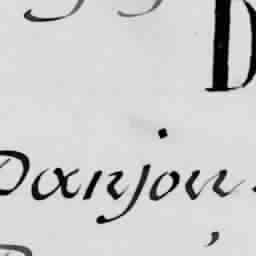 D
Danjou